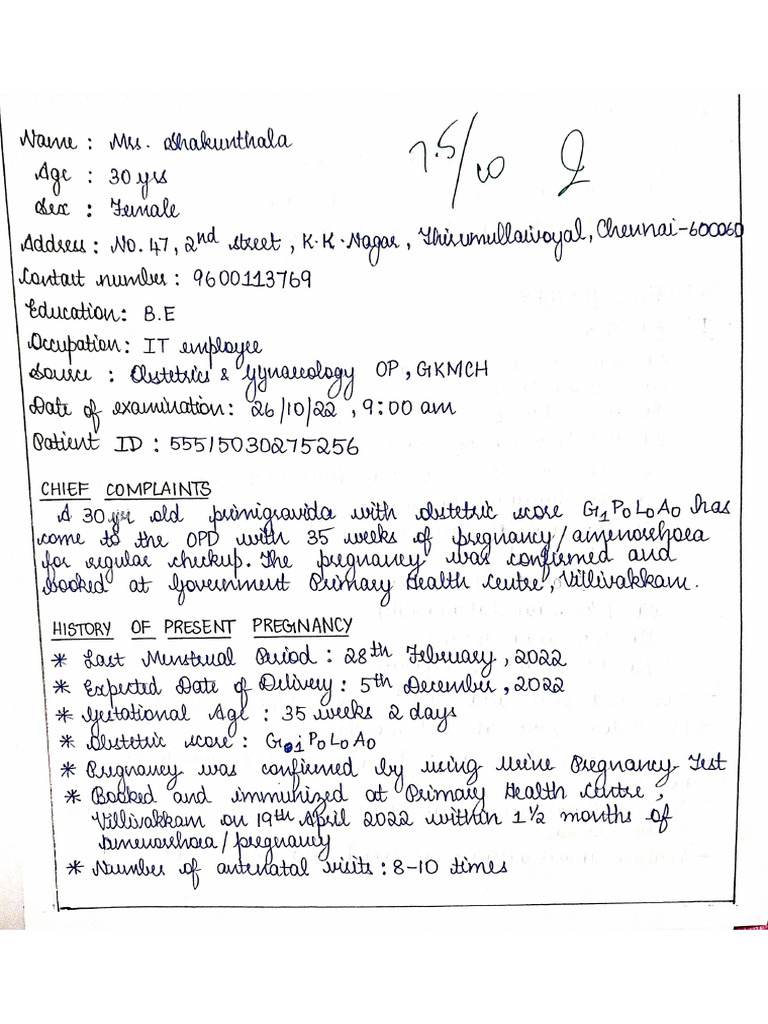 Name : Mrs. Shakunthala
7.5/10
Age : 30 yrs
Sex : Female
Address : No. 47, 2nd street, K.K. Nagar, Thirumullaivoyal, Chennai-600060
Contact number : 9600113769
Education: B.E
Occupation: IT employee
Source : Obstetrics & Gynaecology OP, GKMCH
Date of examination: 26/10/22, 9:00 am
Patient ID : 55515030275256
CHIEF COMPLAINTS
A 30 yr old primigravida with obstetric score G1P0L0A0 has
come to the OPD with 35 weeks of pregnancy/amenorrhoea
for regular checkup. The pregnancy was confirmed and
booked at Government Primary Health Centre, Villivakkam.
HISTORY OF PRESENT PREGNANCY
* Last Menstrual Period : 28th February, 2022
* Expected Date of Delivery : 5th December, 2022
* Gestational Age : 35 weeks 2 days
* Obstetric score : G1P0L0A0
* Pregnancy was confirmed by using Urine Pregnancy Test
* Booked and immunized at Primary Health Centre,
Villivakkam on 19th April 2022 within 1 1/2 months of
amenorrhoea/pregnancy
* Number of antenatal visits : 8-10 times